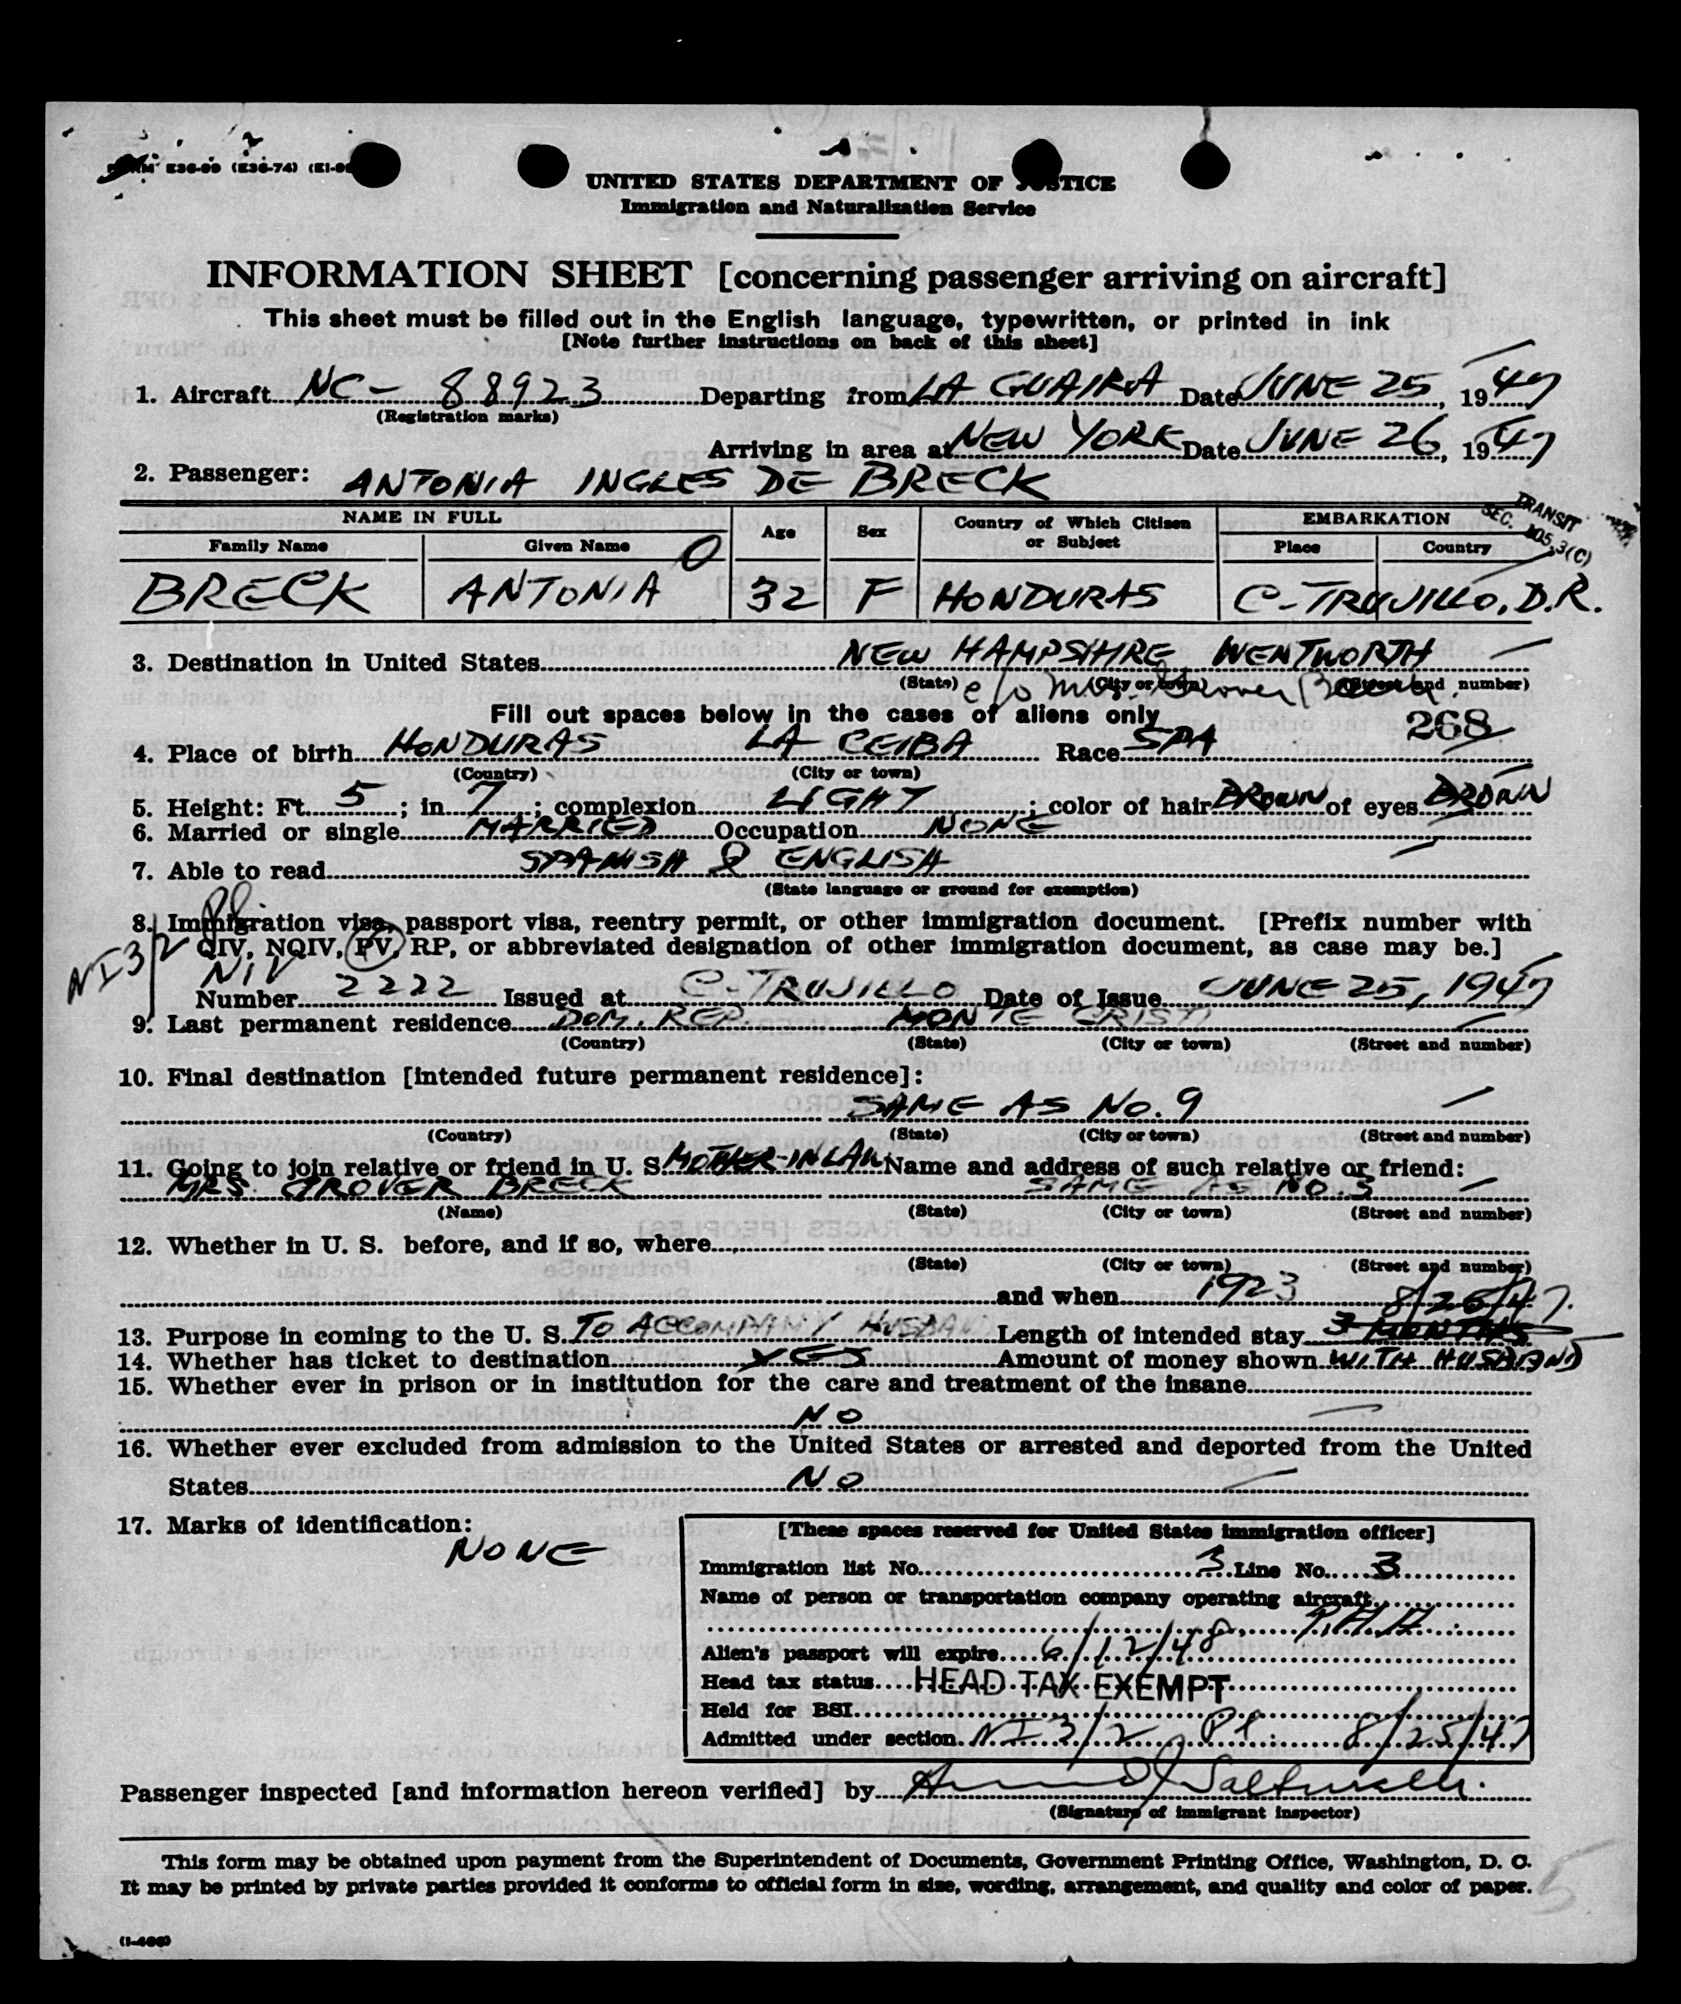 UNITED STATES DEPARTMENT OF JUSTICE
Immigration and Naturalization Service
INFORMATION SHEET [concerning passenger arriving on aircraft]
This sheet must be filled out in the English language, typewritten, or printed in ink
[Note further instructions on back of this sheet]
1. Aircraft NC- 88923 Departing from LA GUAIRA Date JUNE 25, 1947
(Registration marks)
Arriving in area at NEW YORK Date JUNE 26, 1947
2. Passenger: ANTONIA INGLES DE BRECK
NAME IN FULL Age Sex Country of Which Citizen or Subject EMBARKATION TRANSIT SEC. 105.3(C)
Family Name Given Name Place Country
BRECK ANTONIA 32 F HONDURAS C-TRUJILLO, D.R.
3. Destination in United States NEW HAMPSHIRE WENTWORTH
(State) (City or town) (Street and number)
c/o Mrs. Grover Breck
Fill out spaces below in the cases of aliens only 268
4. Place of birth HONDURAS LA CEIBA Race SPA
(Country) (City or town)
5. Height: Ft. 5; in 7; complexion LIGHT; color of hair BROWN of eyes BROWN
6. Married or single MARRIED Occupation NONE
7. Able to read SPANISH & ENGLISH
(State language or ground for exemption)
8. Immigration visa, passport visa, reentry permit, or other immigration document. [Prefix number with
NI 3/2 QIV, NQIV, PV, RP, or abbreviated designation of other immigration document, as case may be.]
NIV
Number 2222 Issued at C-TRUJILLO Date of Issue JUNE 25, 1947
9. Last permanent residence DOM. REP. MONTE CRISTI
(Country) (State) (City or town) (Street and number)
10. Final destination [intended future permanent residence]:
SAME AS No. 9
(Country) (State) (City or town) (Street and number)
11. Going to join relative or friend in U. S. MOTHER-IN LAW Name and address of such relative or friend:
MRS. GROVER BRECK SAME AS NO. 3
(Name) (State) (City or town) (Street and number)
12. Whether in U. S. before, and if so, where
(State) (City or town) (Street and number)
and when 1923 8/25/47.
13. Purpose in coming to the U. S. TO ACCOMPANY HUSBAND Length of intended stay 3 MONTHS
14. Whether has ticket to destination YES Amount of money shown WITH HUSBAND
15. Whether ever in prison or in institution for the care and treatment of the insane
NO
16. Whether ever excluded from admission to the United States or arrested and deported from the United
States NO
17. Marks of identification:
NONE
[These spaces reserved for United States immigration officer]
Immigration list No. 3 Line No. 3
Name of person or transportation company operating aircraft
P.A.A.
Alien's passport will expire 6/12/48
Head tax status HEAD TAX EXEMPT
Held for BSI
Admitted under section NI 3/2 Pl: 8/25/47
Passenger inspected [and information hereon verified] by
(Signature of immigrant inspector)
This form may be obtained upon payment from the Superintendent of Documents, Government Printing Office, Washington, D. C.
It may be printed by private parties provided it conforms to official form in size, wording, arrangement, and quality and color of paper.
(I-466)